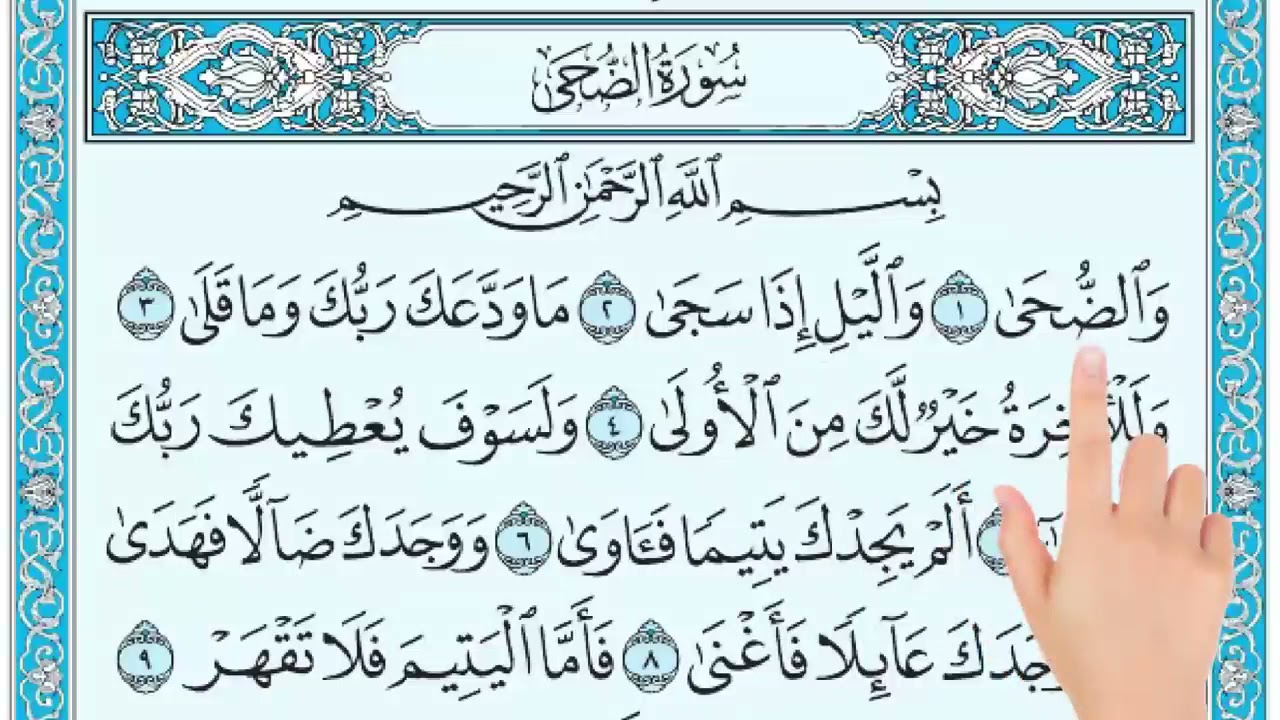 سُورَةُ الضُّحَىٰ
بِسْمِ ٱللَّهِ ٱلرَّحْمَٰنِ ٱلرَّحِيمِ
وَٱلضُّحَىٰ ١ وَٱلَّيْلِ إِذَا سَجَىٰ ٢ مَا وَدَّعَكَ رَبُّكَ وَمَا قَلَىٰ ٣
خَيْرٌ لَّكَ مِنَ ٱلْأُولَىٰ ٤ وَلَسَوْفَ يُعْطِيكَ رَبُّكَ
أَلَمْ يَجِدْكَ يَتِيمًا فَـَٔاوَىٰ ٦ وَوَجَدَكَ ضَآلًّا فَهَدَىٰ
عَآئِلًا فَأَغْنَىٰ ٨ فَأَمَّا ٱلْيَتِيمَ فَلَا تَقْهَرْ ٩